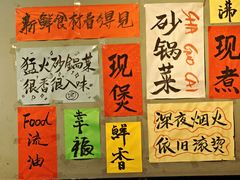 新鲜食材看得见
猛火砂锅菜
很香很入味
现煲
砂锅菜
SHA GUO CAI
沸
现煮
Food
流油
幸福
鲜香
深夜烟火
依旧滚烫